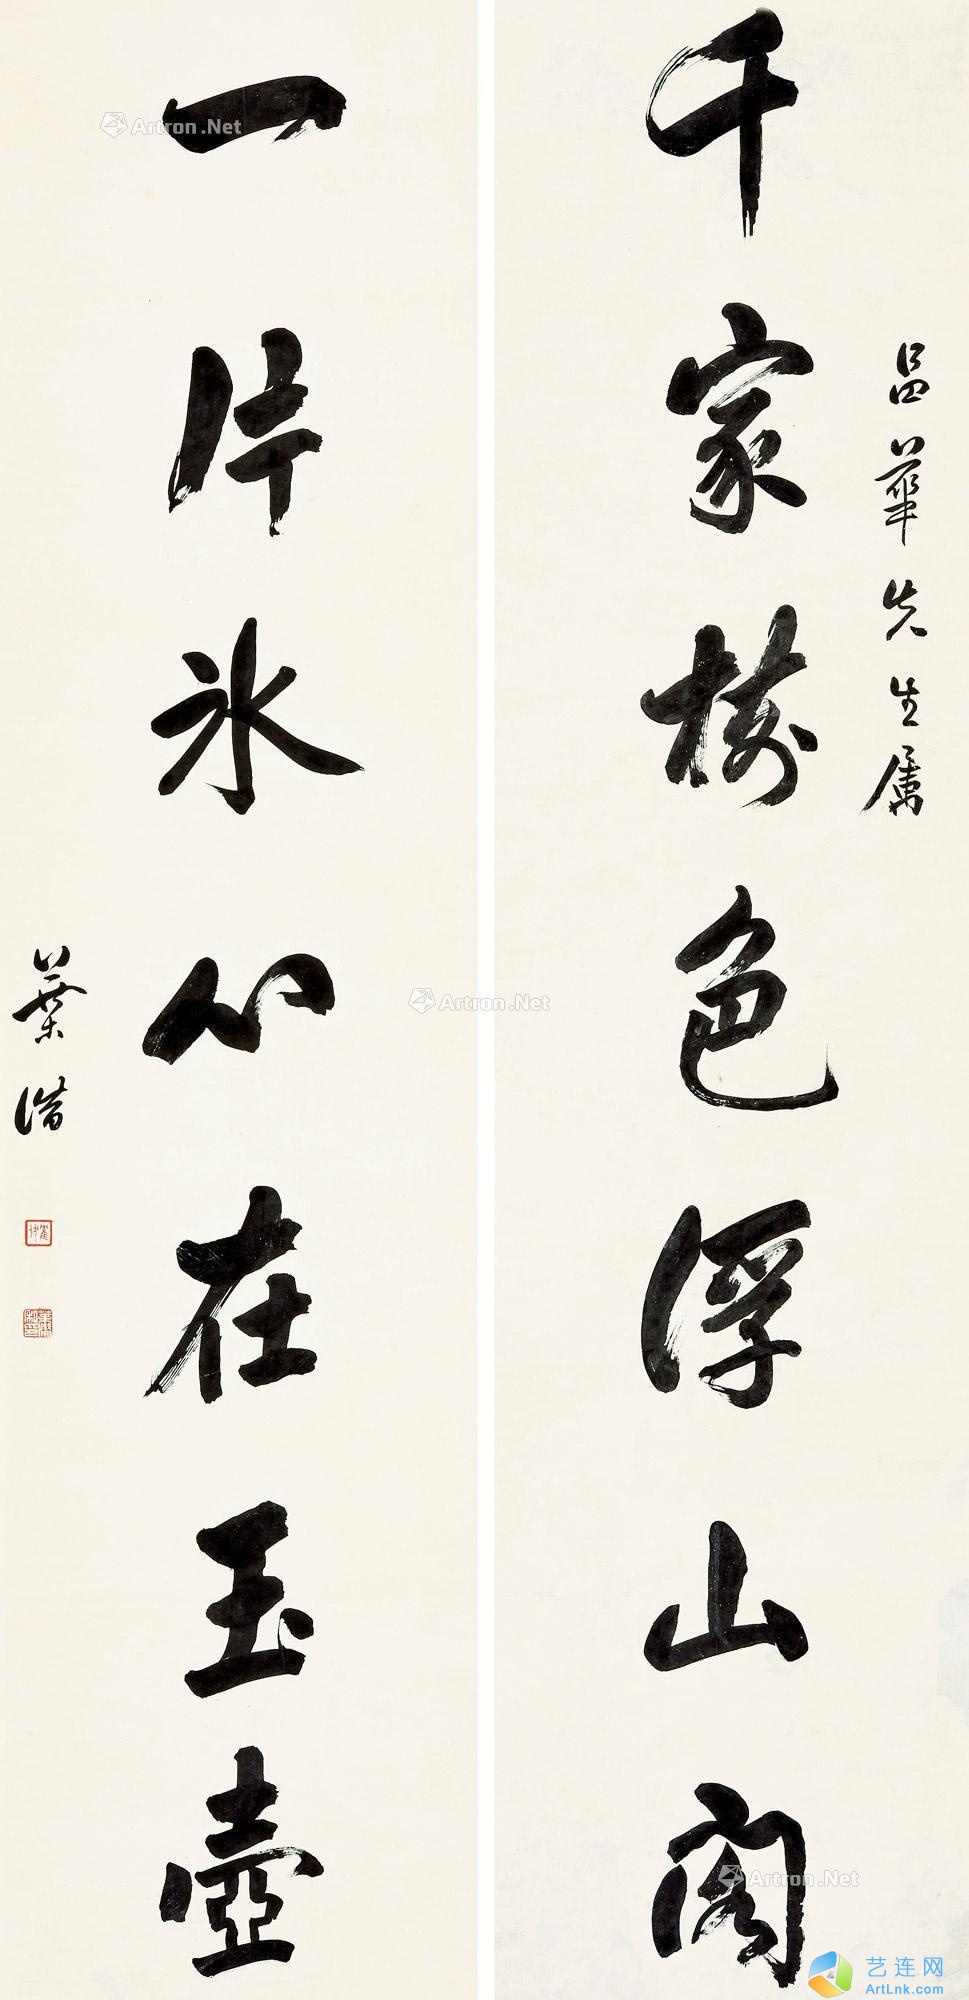 昌華先生属
千家樹色浮山閣
一片氷心在玉壺
葉潛
Artron.Net
Artron.Net
Artron.Net
艺连网
ArtLnk.com